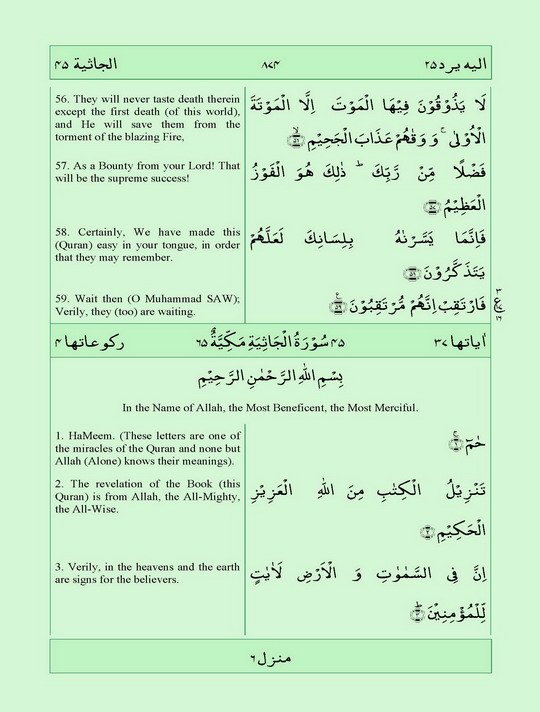 الجاثية ٤٥ ٨٧٤ اليه يرد ٢٥
56. They will never taste death therein
except the first death (of this world),
and He will save them from the
torment of the blazing Fire,
لَا يَذُوْقُوْنَ فِيْهَا الْمَوْتَ اِلَّا الْمَوْتَةَ
الْاُوْلٰى ۚ وَ وَقٰىهُمْ عَذَابَ الْجَحِيْمِ ۙ﴿٥٦﴾
57. As a Bounty from your Lord! That
will be the supreme success!
فَضْلًا مِّنْ رَّبِّكَ ؕ ذٰلِكَ هُوَ الْفَوْزُ
الْعَظِيْمُ ﴿٥٧﴾
58. Certainly, We have made this
(Quran) easy in your tongue, in order
that they may remember.
فَاِنَّمَا يَسَّرْنٰهُ بِلِسَانِكَ لَعَلَّهُمْ
يَتَذَكَّرُوْنَ ﴿٥٨﴾
59. Wait then (O Muhammad SAW);
Verily, they (too) are waiting.
فَارْتَقِبْ اِنَّهُمْ مُّرْتَقِبُوْنَ ﴿٥٩﴾
٣
ع
١٦
اٰیاتها ٣٧ ٤٥ سُوْرَةُ الْجَاثِيَةِ مَكِّيَّةٌ ٦٥ ركوعاتها ٤
بِسْمِ اللهِ الرَّحْمٰنِ الرَّحِيْمِ
In the Name of Allah, the Most Beneficent, the Most Merciful.
1. HaMeem. (These letters are one of
the miracles of the Quran and none but
Allah (Alone) knows their meanings).
حٰمٓ ۚ﴿١﴾
2. The revelation of the Book (this
Quran) is from Allah, the All-Mighty,
the All-Wise.
تَنْزِيْلُ الْكِتٰبِ مِنَ اللهِ الْعَزِيْزِ
الْحَكِيْمِ ﴿٢﴾
3. Verily, in the heavens and the earth
are signs for the believers.
اِنَّ فِى السَّمٰوٰتِ وَ الْاَرْضِ لَاٰيٰتٍ
لِّلْمُؤْمِنِيْنَ ؕ﴿٣﴾
منزل ٦